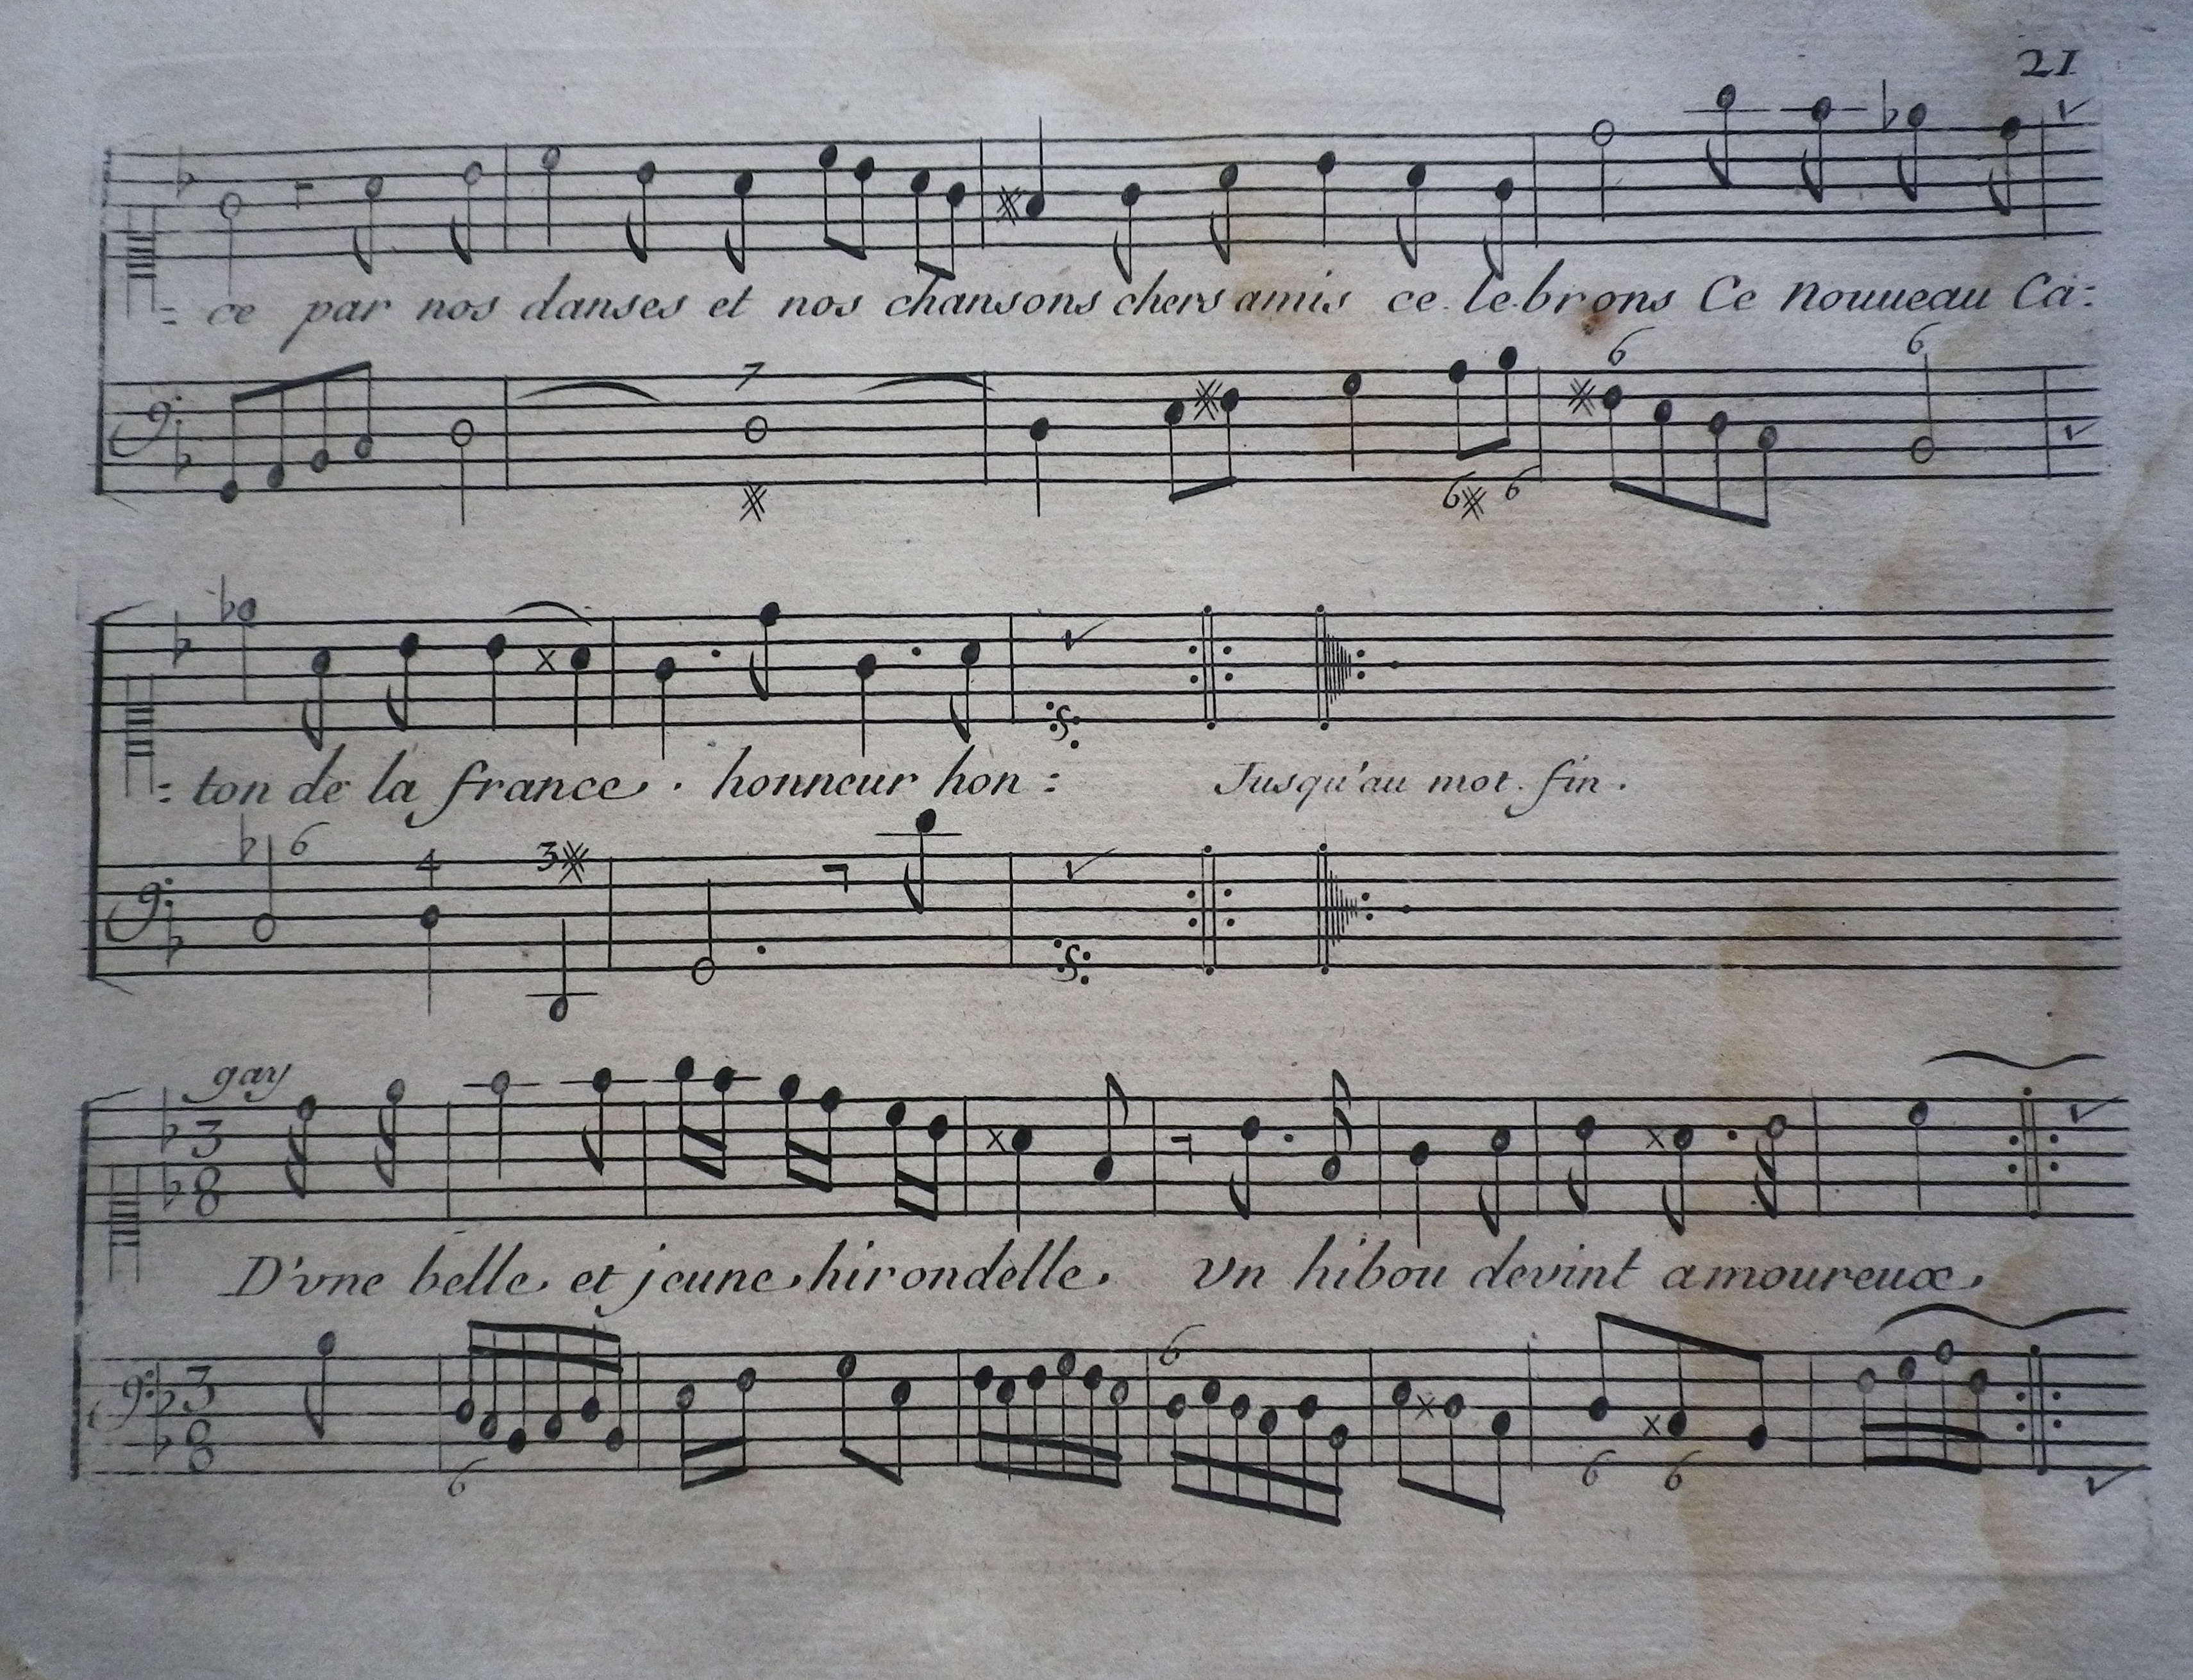 21
= ce par nos danses et nos chansons chers amis ce le brons Ce nouueau Ca=
7
6
6
6
6
= ton de la france. honneur hon= Jusqu'au mot. fin.
6 4 3
gay
3
8
D'vne belle et jeune hirondelle. Vn hibou devint amoureux.
3
8
6
6
6 6